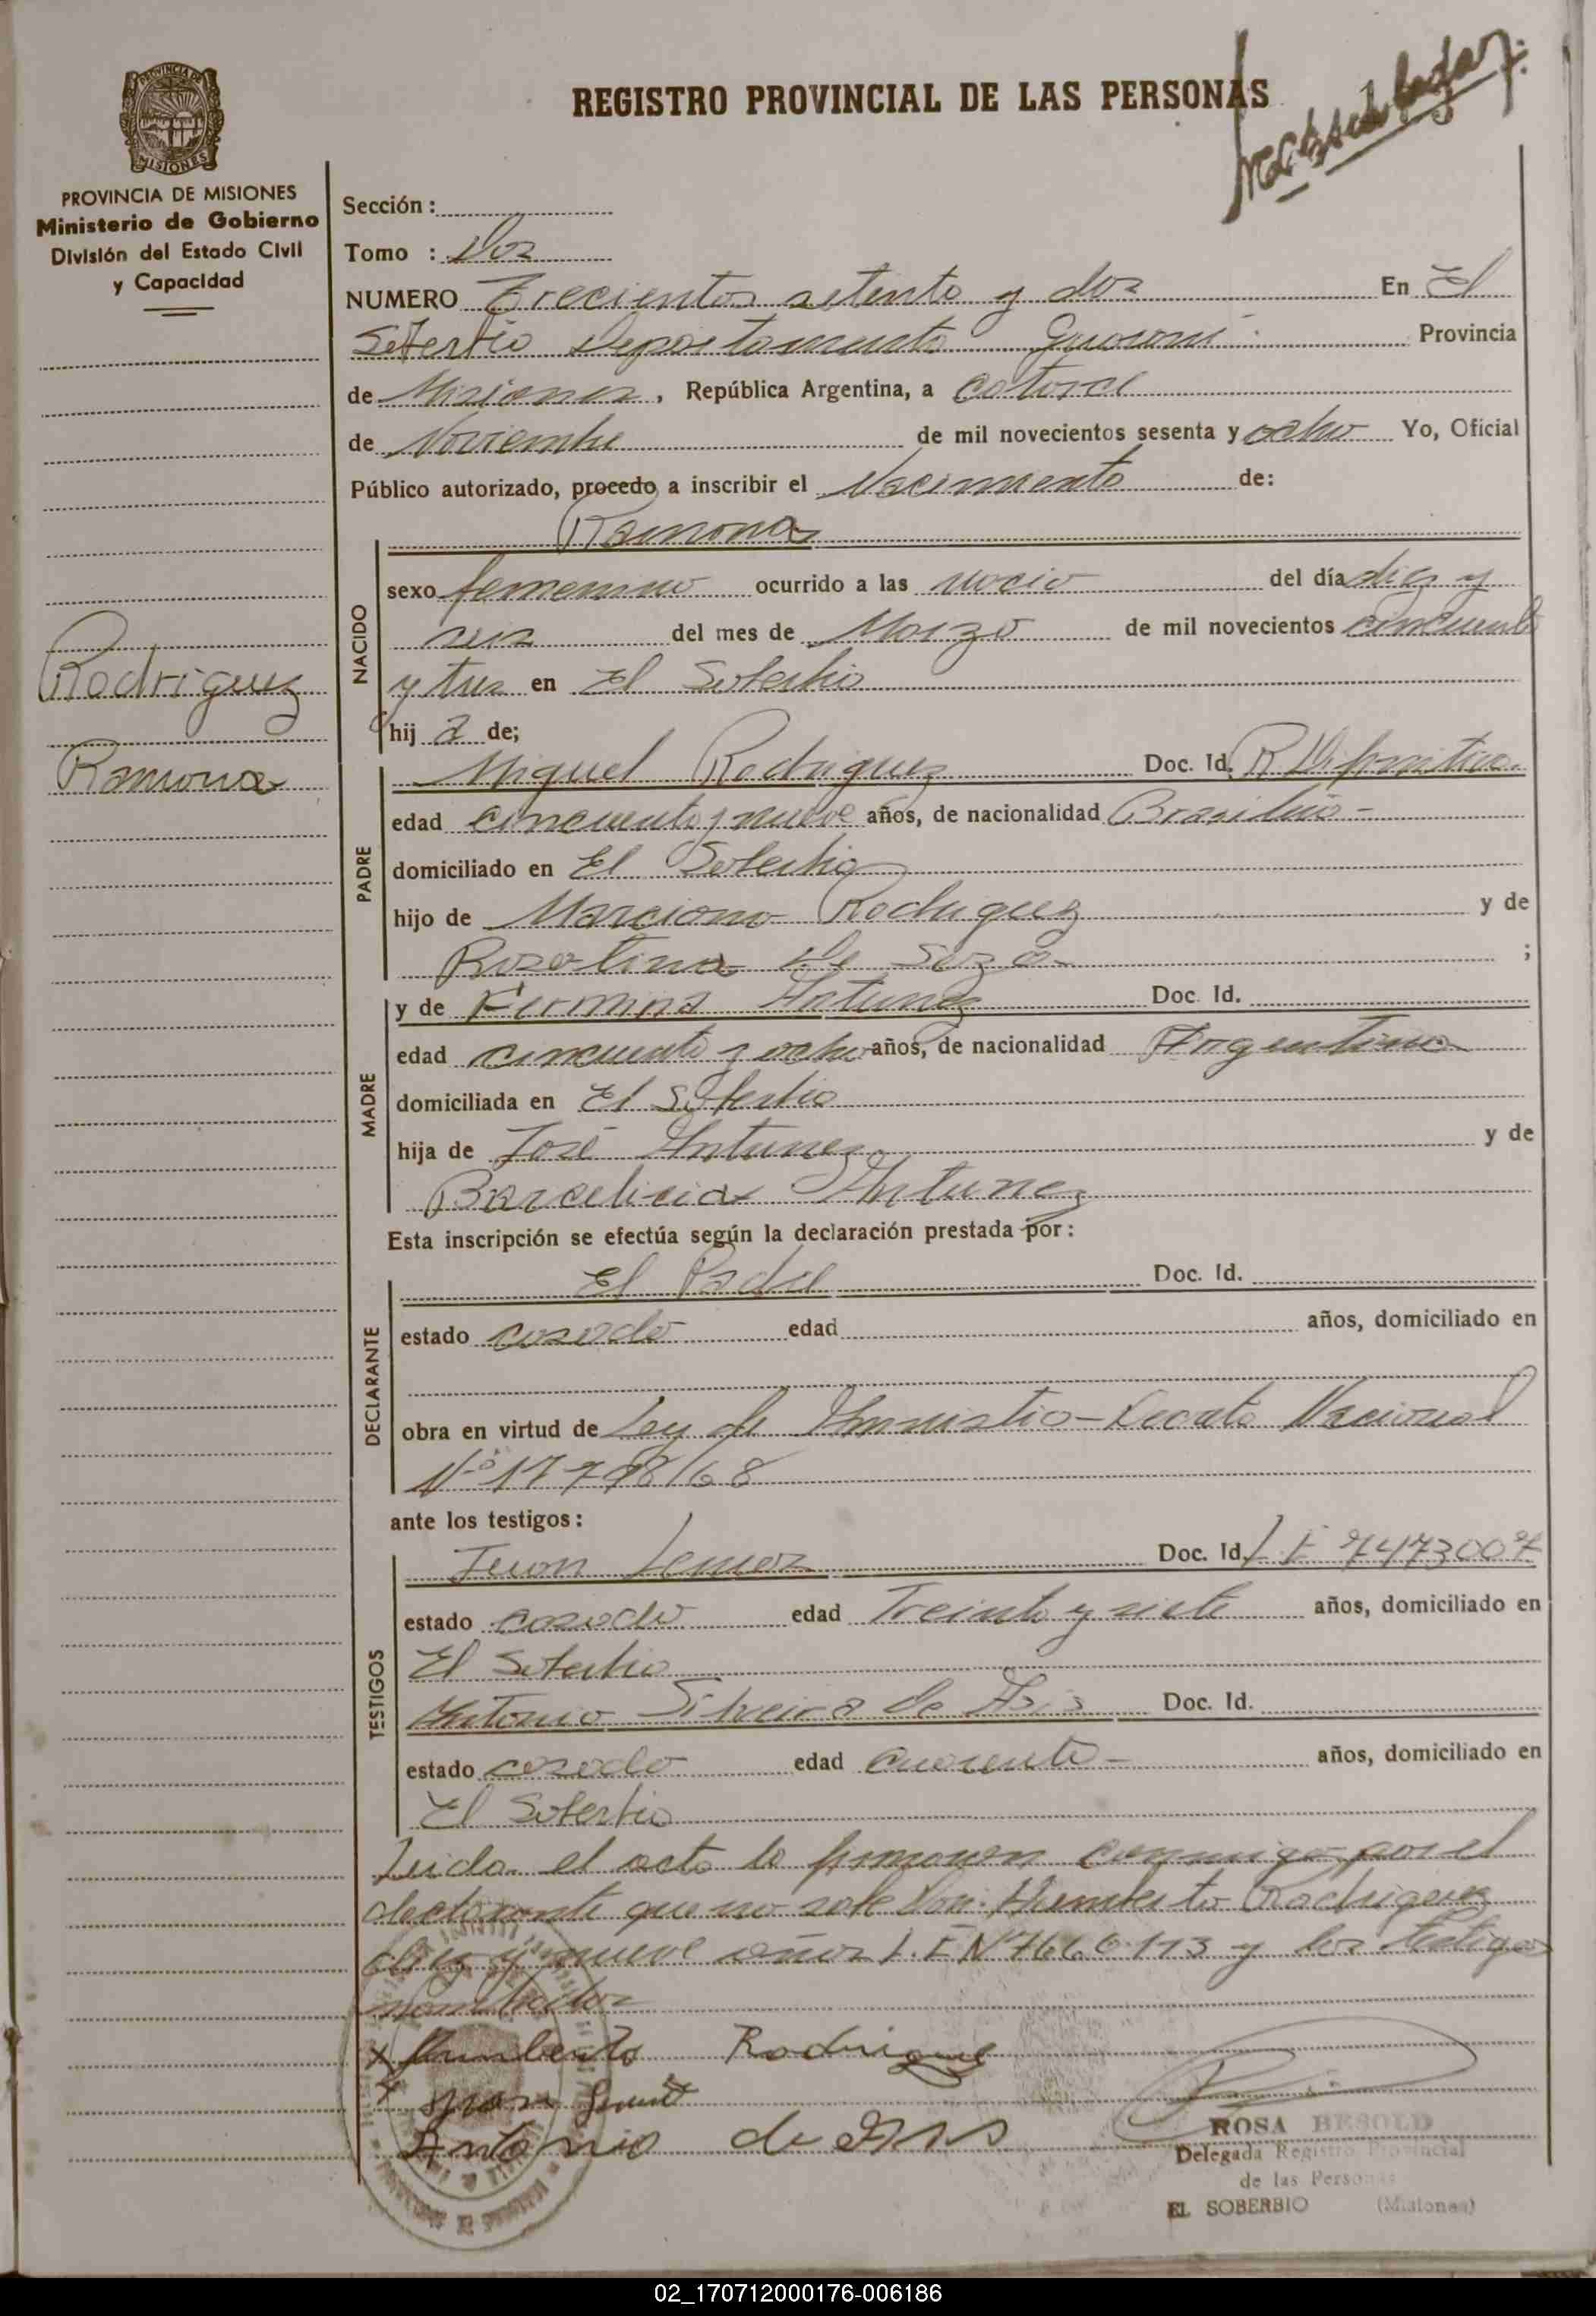 PROVINCIA DE MISIONES
MISIONES
PROVINCIA DE MISIONES
Ministerio de Gobierno
División del Estado Civil
y Capacidad
Rodriguez
Ramona
REGISTRO PROVINCIAL DE LAS PERSONAS
Sección :
Tomo : Dos
NUMERO Trecientos setenta y dos En El
Soberbio Departamento Guarani Provincia
de Misiones, República Argentina, a catorce
de Noviembre de mil novecientos sesenta y ocho Yo, Oficial
Público autorizado, procedo a inscribir el Nacimiento de:
Ramona
NACIDO
sexo femenino ocurrido a las del día diez y
seis del mes de Marzo de mil novecientos cincuenta
y tres en El Soberbio
hij a de;
PADRE
Miguel Rodriguez Doc. Id. R Difinitiva
edad cincuenta y nueve años, de nacionalidad Brasileño -
domiciliado en El Soberbio
hijo de Marciano Rodriguez y de
Rozalina de Soza ;
MADRE
y de Firmina Antunez Doc. Id.
edad cincuenta y ocho años, de nacionalidad Argentina
domiciliada en El Soberbio
hija de José Antunez y de
Antunez
Esta inscripción se efectúa según la declaración prestada por:
DECLARANTE
El Padre Doc. Id.
estado casado edad años, domiciliado en
obra en virtud de Ley de Amnistia - Decreto Nacional
Nº 17798/68
ante los testigos:
TESTIGOS
Juan Lemos Doc. Id. L E 7473007
estado casado edad Treinta y siete años, domiciliado en
El Soberbio
Antonio Silveira de Asis Doc. Id.
estado casado edad cuarenta - años, domiciliado en
El Soberbio
Leida el acta la firmaron conmigo por el
declarante que no sabe Don. Humberto Rodriguez
diez y nueve años L.E Nº 7666113 y los testigos
nombrados
x Humberto Rodriguez
x Juan
Antonio de Asis
ROSA BESOLD
Delegada Registro Provincial
de las Personas
EL SOBERBIO (Misiones)
02_170712000176-006186